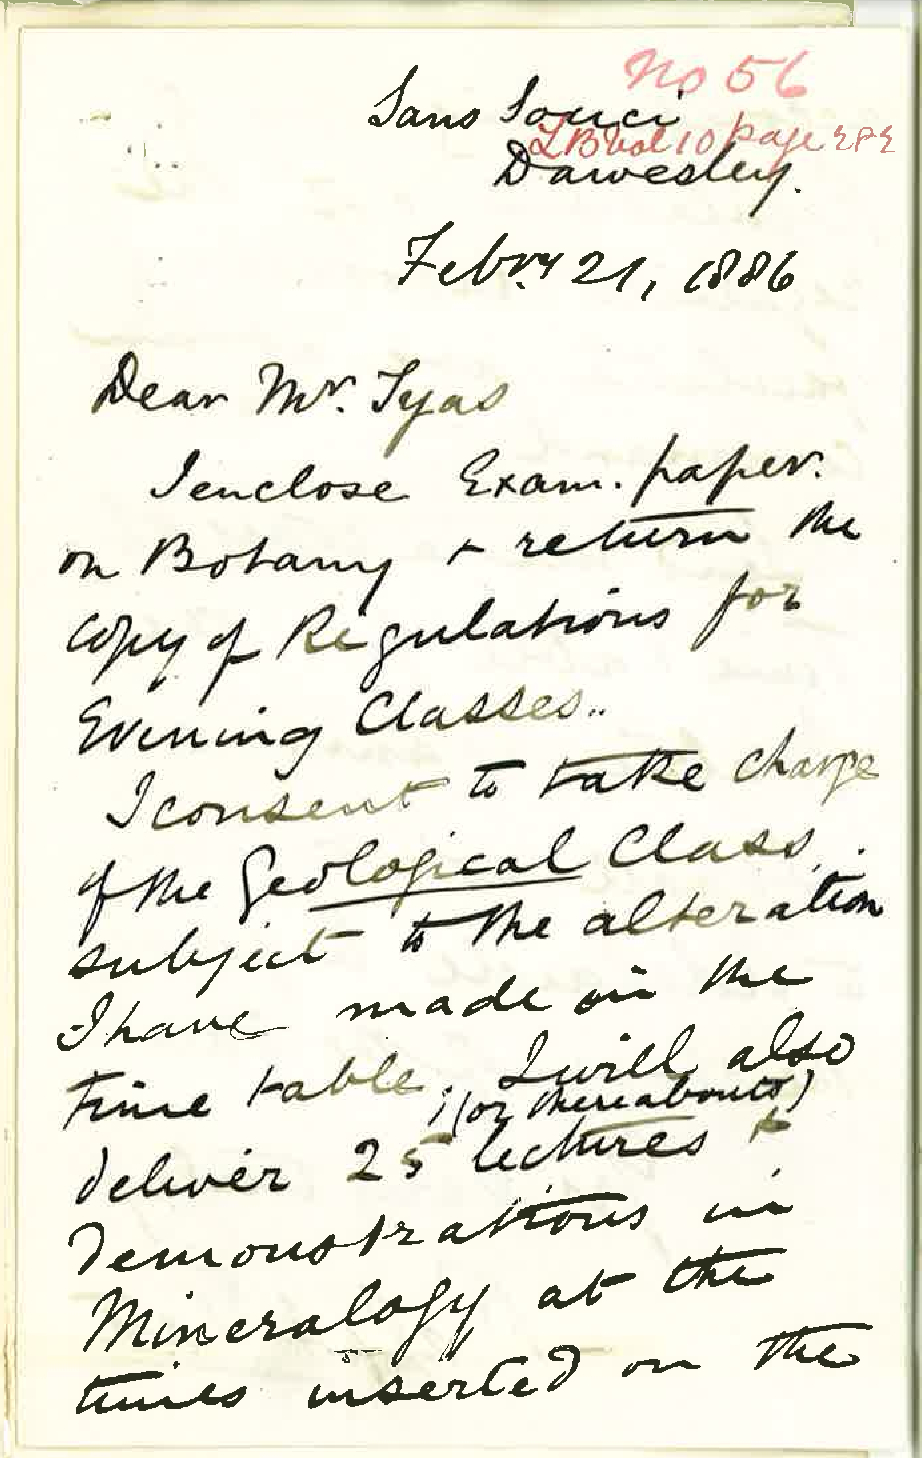 No 56
Sans Souci
LB Vol 10 page
Dawesley.
Febry 21, 1886
Dear Mr. Tyas
I enclose Exam. paper.
on Botany + return the
copy of Regulations for
Evening Classes..
I consent to take charge
of the Geological Class.
subject to the alteration
I have made in the
time table. I will also
(or thereabouts)
deliver 25 lectures +
demonstrations in
Mineralogy at the
times inserted on the